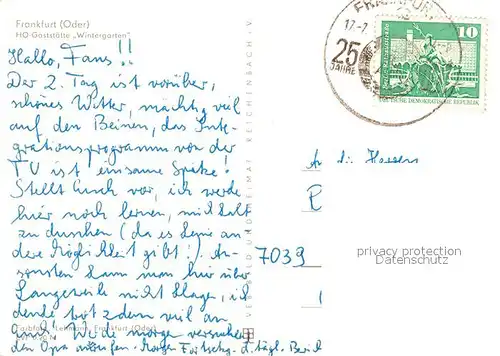 Frankfurt (Oder)
HO-Gaststätte „Wintergarten"
Hallo, Fans!!
Der 2. Tag ist vorüber,
schönes Wetter, mächtig viel
auf den Beinen, das Inte-
grationsprogramm von der
TU ist einsame Spitze!
Stellt Euch vor, ich werde
hier noch lernen, mich kalt
zu duschen (da es keine an
dere Möglichkeit gibt!). An-
sonsten kann man hier über
Langeweile nicht klagen, ich
denke trotzdem viel an
Euch! Werde morgen versuchen
den Opa anrufen. Morgen Fortsetzg. d. tägl. Berich
Farbfoto: Lehmann, Frankfurt (Oder)
VERLAG BILD UND HEIMAT REICHENBACH I. V.
FRANKFURT
17.-7.
25
JAHRE
10
DEUTSCHE DEMOKRATISCHE REPUBLIK
An die
7039
privacy protection
Datenschutz